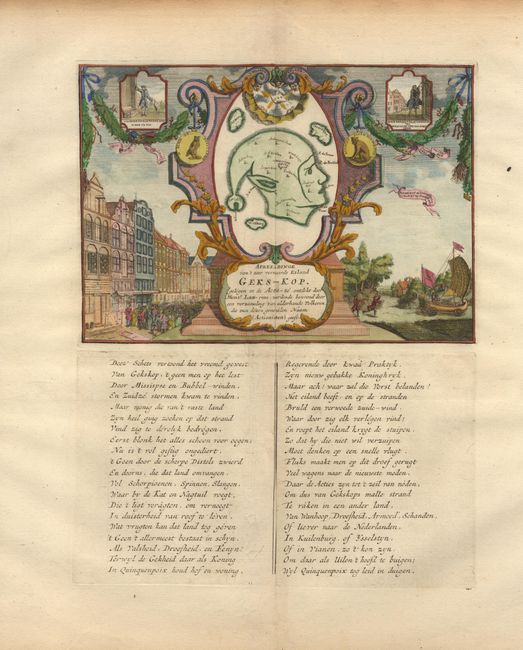 AFBEELDINGE
van 't zeer vermaarde Eiland
GEKS-KOP.
geleegen in de Actie-zé, ontdekt door
Monsr. Law-rens, werdende bewoond door
een verzameling van alderhande Volkeren
die men dezen generalen Naam
(Actionisten) geeft.
Deez' Schets verzond het vreemd gewest
Van Gekskop, 't geen men op het lest
Door Missisipse en Bubbel-winden,
En Zuidzé stormen kwam te vinden,
Maar menig die van 't vaste land
Zyn heil ging zoeken op dat strand
Vind zig te deerelyk bedrogen,
Eerst blonk het alles schoon voor oogen;
Nu is 't vol giftig ongediert,
't Geen door de scherpe Distels zwierd
En doorns, die dat land omvangen,
Vol Schorpioenen, Spinnen, Slangen,
Waar by de Kat en Nagtuil voegt,
Die 't ligt veragten, om vernoegt
In duisterheid van roof te leven.
Wat vrugten han dat land tog geven
't Geen 't allermeest bestaat in schyn,
Als Valsheid, Droefheid, en Fenyn?
Terwyl de Gekheid daar als Koning
In Quinquenpoix houd hof en woning,
Regerende door kwaû Praktyk,
Zyn nieuw gebakke Koninghryk,
Maar ach! waar zal die Vorst belanden?
Het eiland beeft, en op de stranden
Bruld een verwoede zuide-wind
Waar door zig elk verlegen vind;
En roept het eiland krygt de stuipen,
Zo dat hy die niet wil verzuipen
Moet denken op een snelle vlugt
Fluks maakt men op dit droef gerugt
Veel wagens naar de nieuwste moden,
Daar de Acties zyn tot 't zeil van noden,
Om dus van Gekskops malle strand
Te raken in een ander land,
Van Wanhoop, Droefheid, Armoed, Schanden,
Of liever naar de Nederlanden,
In Kuilenburg, of Ysselsteyn,
Of in Vianen, zo 't kon zyn,
Om daar als Uilen 't hoofd te buigen;
Wyl Quinquenpoix tog leid in duigen.